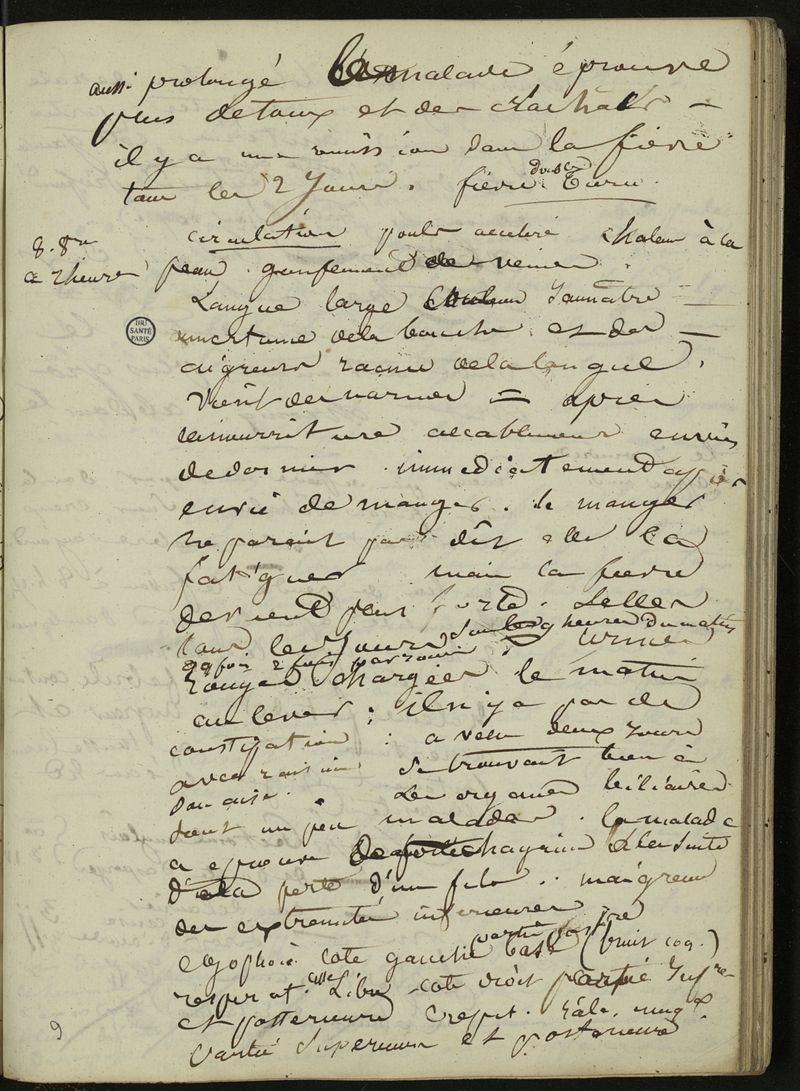 aussi prolongé la malade éprouve
plus de toux et des crachats –
il y a une rémission dans la fièvre
tous les 2 jours. fièvre double Tierce.
8. 8bre
à 2 heures
circulation pouls accéléré chaleur à la
peau. gonflement des veines.
Langue large jaunâtre –
amertume de la bouche et des –
aigreurs racine de la langue.
Vient des narines = après
la nourriture accablement envies
de dormir. immédiatement après
envie de manger. le manger
ne parait pas dit elle la
fatiguer mais la fièvre
devient plus forte. Selles
tous les jours dans les 9 heures du matin
qq fois 2 fois par jour. urines
rouges chargées le matin
au lever; il n'y a pas de
constipation : a vécu deux jours
avec raisin se trouvant bien à
son aise. Les organes biliaires
sont un peu malades. la malade
a éprouvé chagrin à la suite
de la perte d'un fils. maigreur
des extrémités inférieures
egophonie coté gauche partie basse (bruit coq.)
respirat. assez Libre coté droit partie Supre
et postérieure crepit. râle. muqx.
partie Supérieure et postérieure
9
BIU
SANTÉ
PARIS